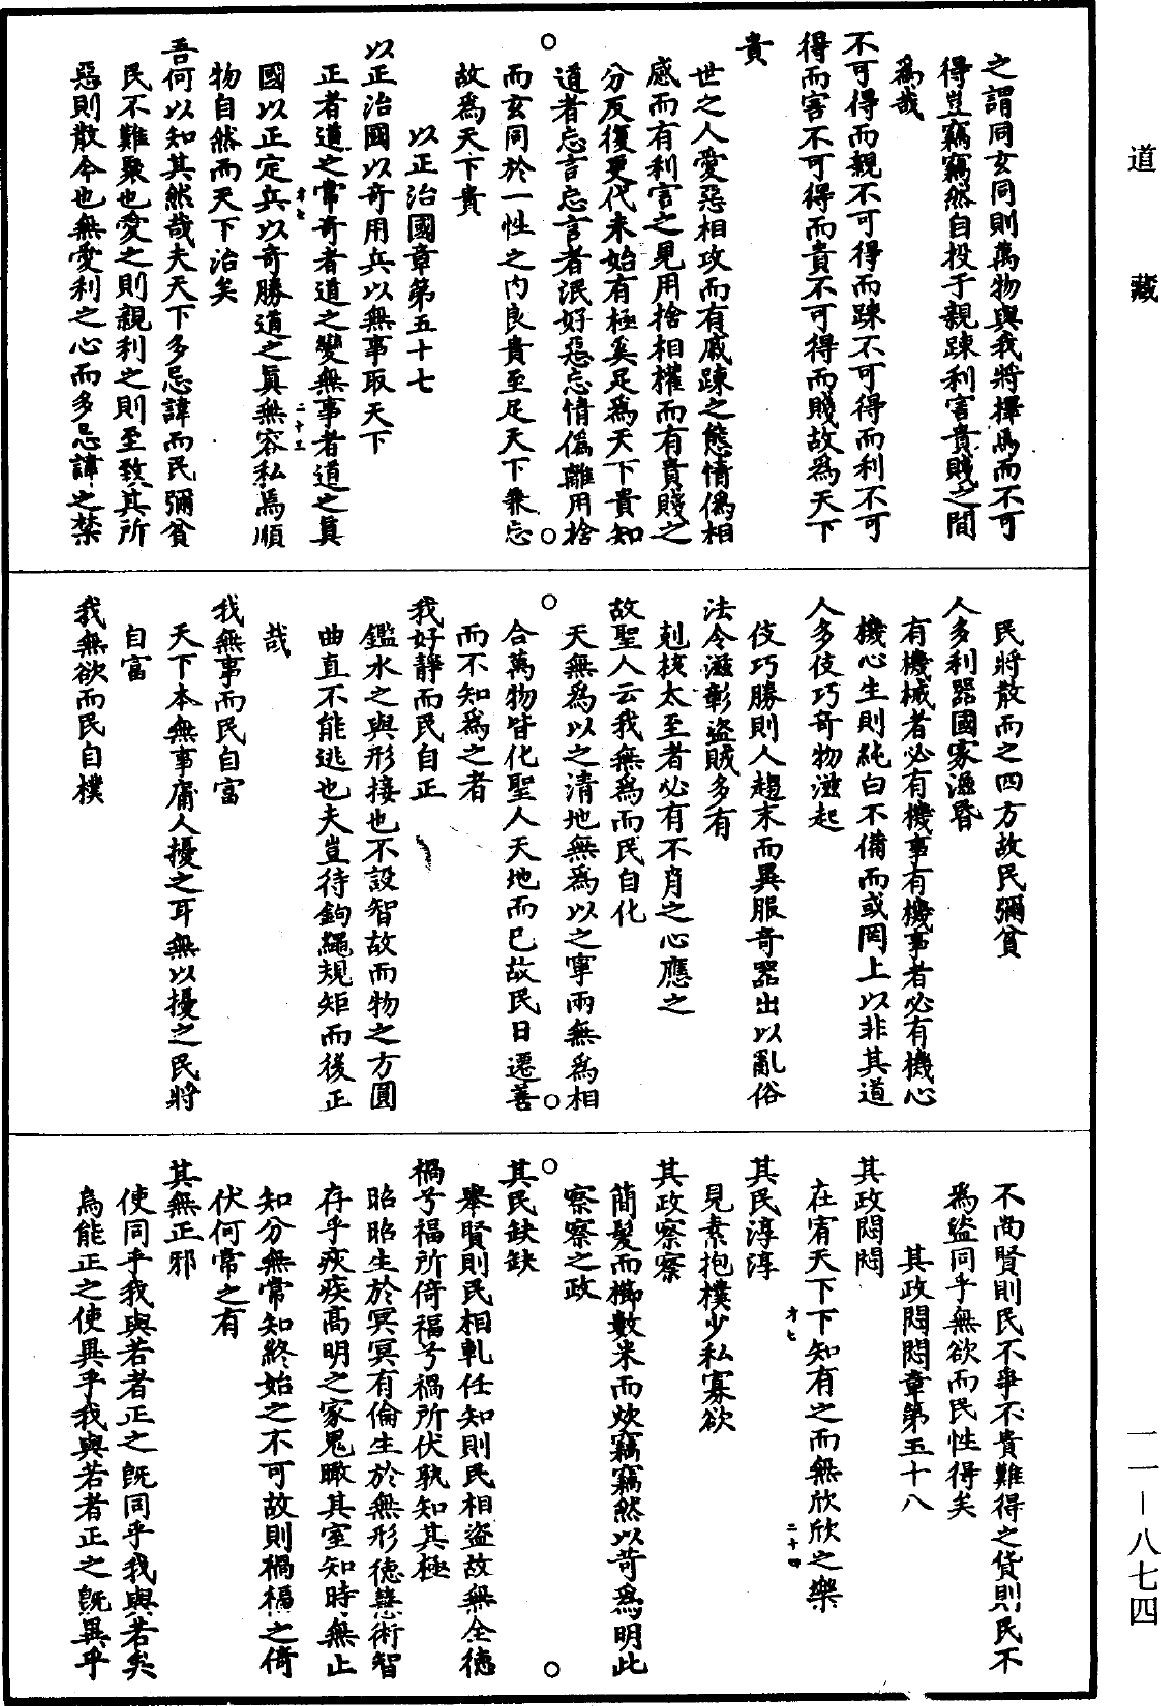 道藏
之謂同玄同則萬物與我將擇焉而不可
得豈竊竊然自投于親踈利害貴賤之間
為哉
不可得而親不可得而踈不可得而利不可
得而害不可得而貴不可得而賤故為天下
貴
世之人愛惡相攻而有戚踈之態情偽相
感而有利害之見用捨相權而有貴賤之
分反復更代未始有極奚足為天下貴知
道者忘言忘言者泯好惡忘情偽離用捨
而玄同於一性之內良貴至足天下兼忘
故為天下貴
以正治國章第五十七
以正治國以奇用兵以無事取天下
正者道之常奇者道之變無事者道之真
國以正定兵以奇勝道之真無容私焉順
才七
二十三
物自然而天下治矣
吾何以知其然哉夫天下多忌諱而民彌貧
民不難聚也愛之則親利之則至致其所
惡則散今也無愛利之心而多忌諱之禁
民將散而之四方故民彌貧
人多利器國家滋昏
有機械者必有機事有機事者必有機心
機心生則純白不備而或罔上以非其道
人多伎巧奇物滋起
伎巧勝則人趨末而異服奇器出以亂俗
法令滋彰盜賊多有
剋核太至者必有不肖之心應之
故聖人云我無為而民自化
天無為以之清地無為以之寧兩無為相
合萬物皆化聖人天地而已故民日遷善
而不知為之者
我好靜而民自正
鑑水之與形接也不設智故而物之方圓
曲直不能逃也夫豈待鉤繩規矩而後正
哉
我無事而民自富
天下本無事庸人擾之耳無以擾之民將
自富
我無欲而民自樸
不尚賢則民不爭不貴難得之貨則民不
為盜同乎無欲而民性得矣
其政悶悶章第五十八
其政悶悶
在宥天下下知有之而無欣欣之樂
才七
二十四
其民淳淳
見素抱樸少私寡欲
其政察察
簡髮而櫛數米而炊竊竊然以苛為明此
察察之政
其民缺缺
舉賢則民相軋任知則民相盜故無全德
禍兮福所倚福兮禍所伏孰知其極
昭昭生於冥冥有倫生於無形德慧術智
存乎疢疾高明之家鬼瞰其室知時無止
知分無常知終始之不可故則禍福之倚
伏何常之有
其無正邪
使同乎我與若者正之既同乎我與若矣
烏能正之使異乎我與若者正之既異乎
一一－八七四